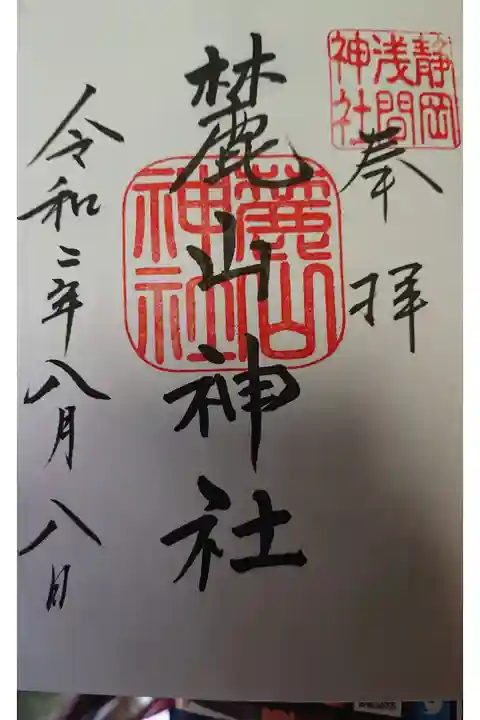 静岡
浅間
神社
奉拝
麓山神社
麓山
神社
令和二年八月八日